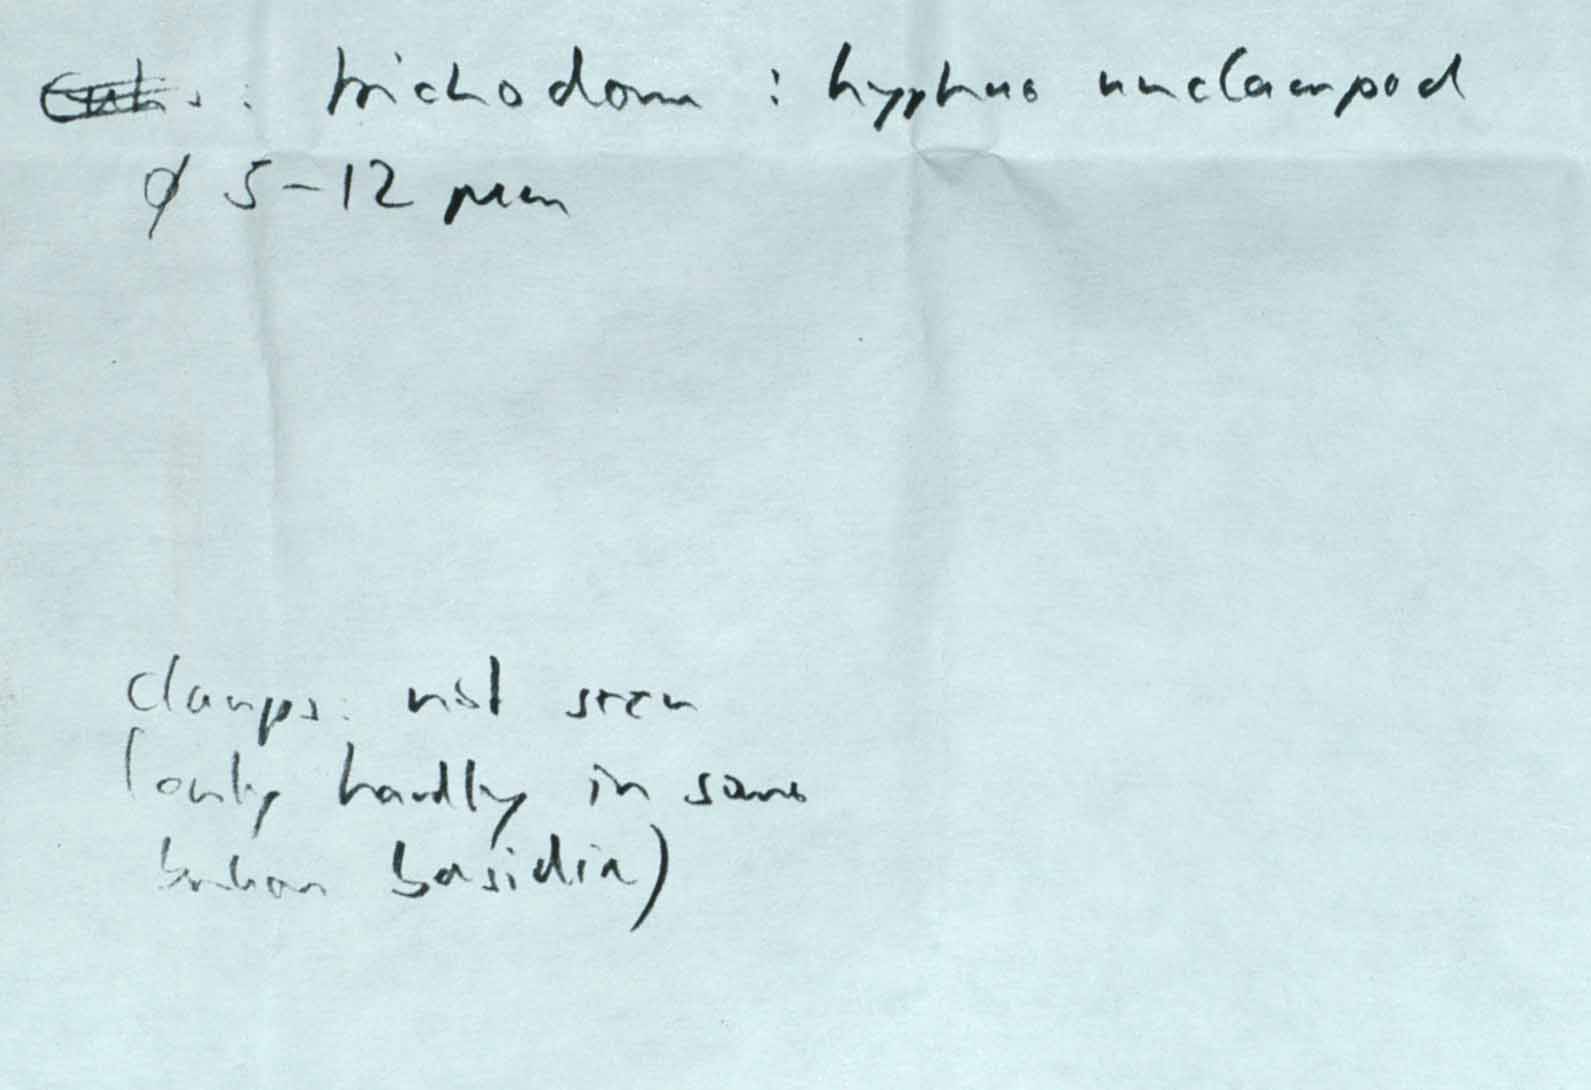 : trichoderm : hyphae unclamped
ø 5-12 µm
clamps: not seen
(only hardly in some
broken basidia)